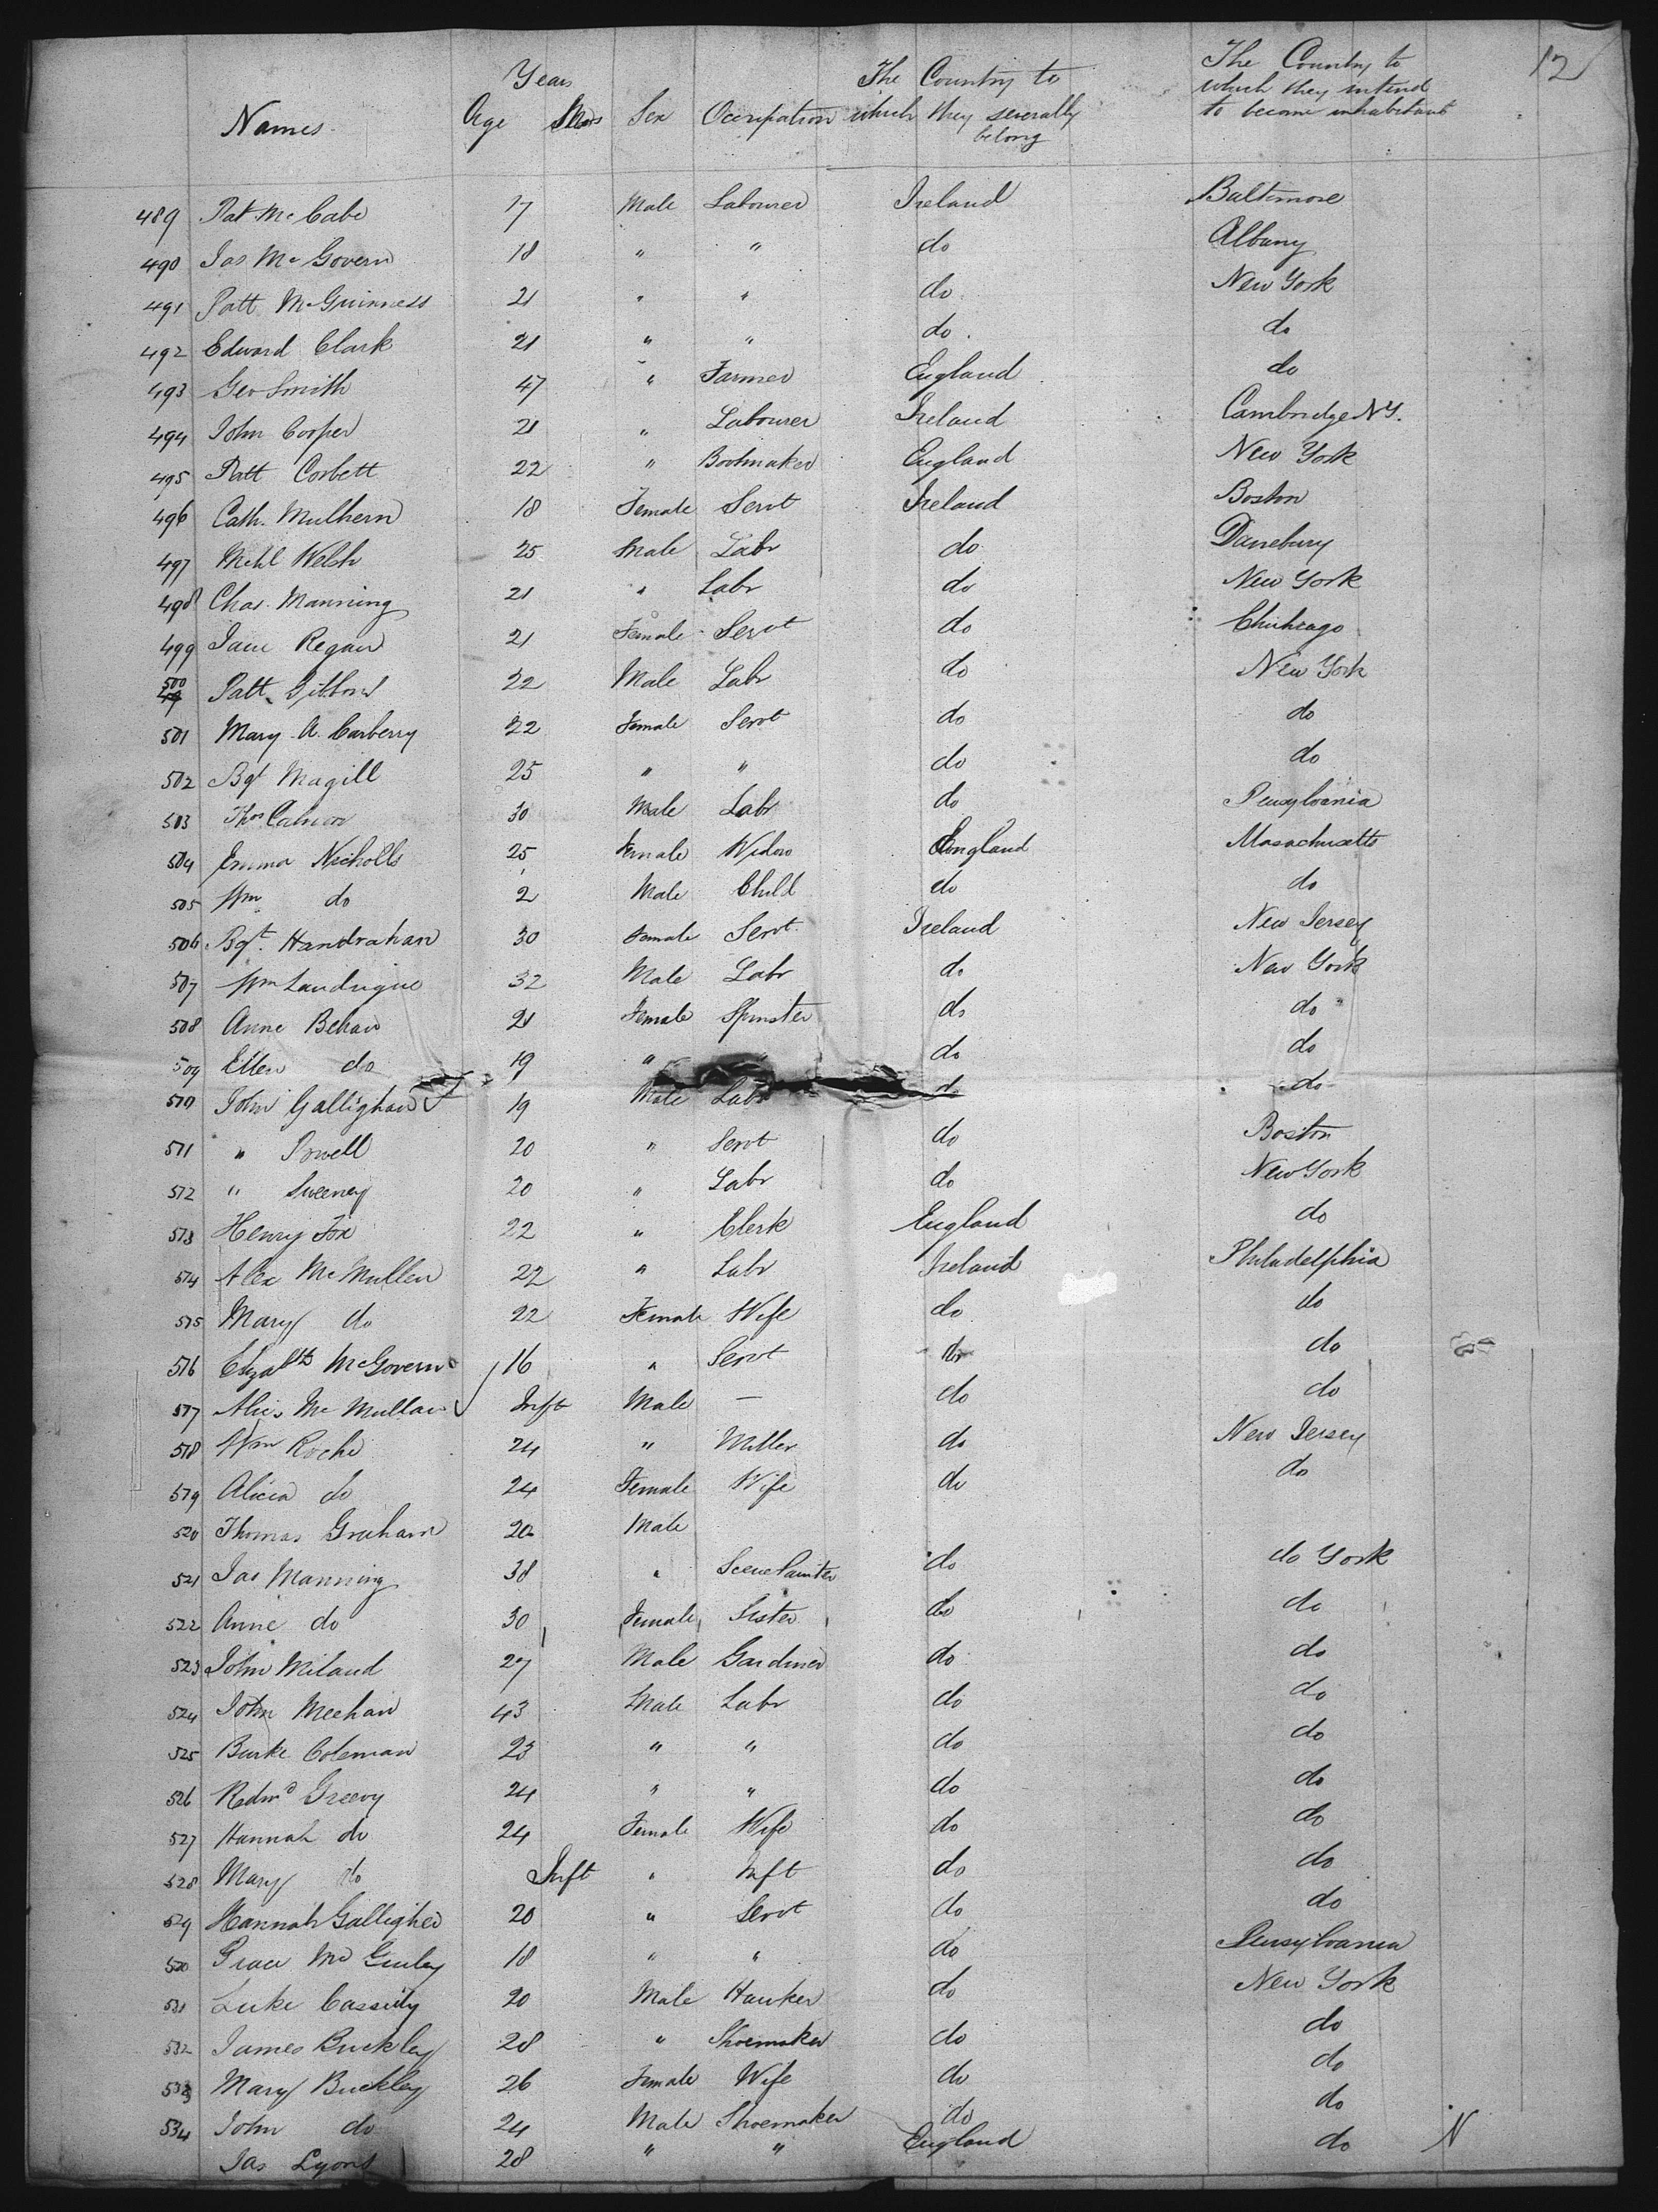 12
Names Years Age Mos Sex Occupation The Country to which they severally belong The Country to which they intend to become inhabitants
489 Pat McCabe 17 Male Labourer Ireland Baltimore
490 Jas McGovern 18 " " do Albany
491 Patt McGuinness 21 " " do New York
492 Edward Clark 21 " " do do
493 Geo Smith 47 " Farmer England do
494 John Cooper 21 " Labourer Ireland Cambridge NY.
495 Patt Corbett 22 " Bootmaker England New York
496 Cath. Mulhern 18 Female Servt Ireland Boston
497 Michl Welsh 25 Male Labr do Danebury
498 Chas. Manning 21 " Labr do New York
499 Jane Regan 21 Female Servt do Chichcago
500 Patt Gibbons 22 Male Labr do New York
501 Mary A. Carberry 22 Female Servt do do
502 Bgt Magill 25 " " do do
503 Thos 30 Male Labr do Pensylvania
504 Emma Nicholls 25 Female Widow England Masachusetts
505 Wm do 2 Male Child do do
506 Bgt. Handrahan 30 Female Servt Ireland New Jersey
507 Wm Landrigue 32 Male Labr do New York
508 Anne Behan 21 Female Spinster do do
509 Ellen do 19 " do do
510 John Gallighan 19 Male Labr do do
511 " Powell 20 " Servt do Boston
512 " Sweeney 20 " Labr do New York
513 Henry Fox 22 " Clerk England do
514 Alex McMullen 22 " Labr Ireland Philadelphia
515 Mary do 22 Female Wife do do
516 Elizabth McGovern 16 " Servt do do
517 Alex McMullan Inft Male — do do
518 Wm Roche 24 " Miller do New Jersey
519 Alicia do 24 Female Wife do do
520 Thomas Graham 20 Male
521 Jas Manning 38 " Scene Painter do do York
522 Anne do 30 Female Sister do do
523 John Miland 27 Male Gardiner do do
524 John Meehan 43 Male Labr do do
525 Burke Coleman 23 " " do do
526 Redmd Greevy 24 " " do do
527 Hannah do 24 Female Wife do do
528 Mary do Inft " Inft do do
529 Hannah Galligher 20 " Servt do do
530 Grace McGinley 18 " " do Pensylvania
531 Luke Cassidy 20 Male Hawker do New York
532 James Buckley 28 " Shoemaker do do
533 Mary Buckley 26 Female Wife do do
534 John do 24 Male Shoemaker do do
Jas Lyons 28 " " England do N